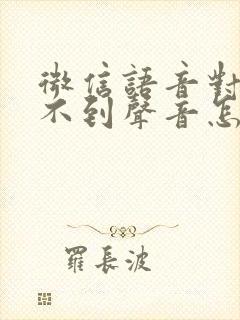 微信語音對
不到聲音怎
羅長波